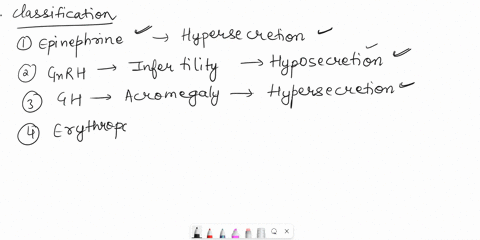 Classification
① Epinephrine ✓ → Hypersecretion ✓
② GnRH → Infertility → Hyposecretion ✓ ✓
③ GH → Acromegaly → Hypersecretion ✓
④ Erythropo